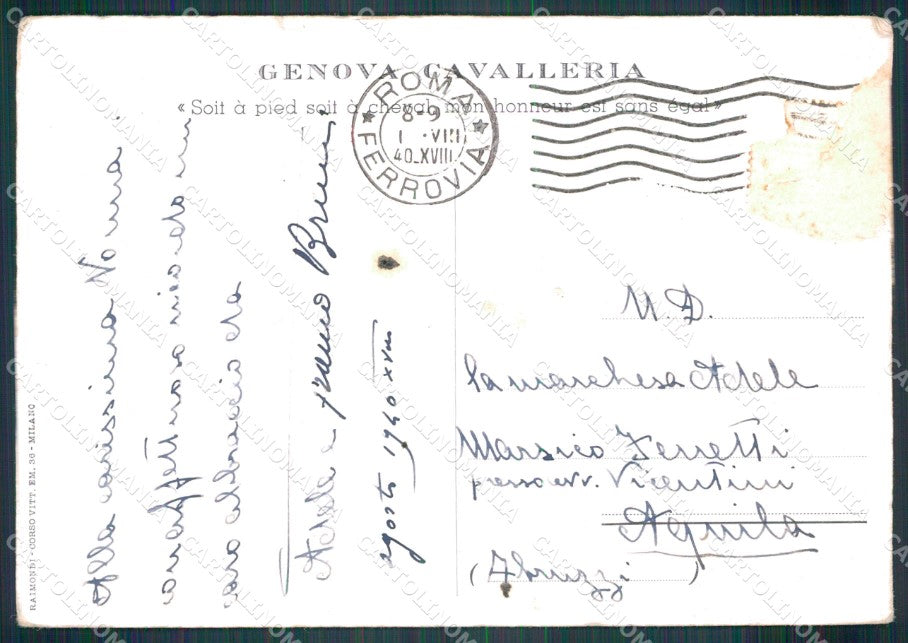 GENOVA CAVALLERIA
« Soit à pied soit à cheval, mon honneur est sans égal »
ROMA
FERROVIA
8-9
1 - VIII
40.XVIII
Alla carissima Nonna
con affettuoso ricordo un
caro abbraccio da
Adele e
agosto 1940 XVIII
N. D.
la marchesa Adele
Marsico Ferretti
presso avv. Vicentini
Aquila
(Abruzzi)
RAIMONDI - CORSO VITT. EM. 36 - MILANO
CARTOLINOMANIA